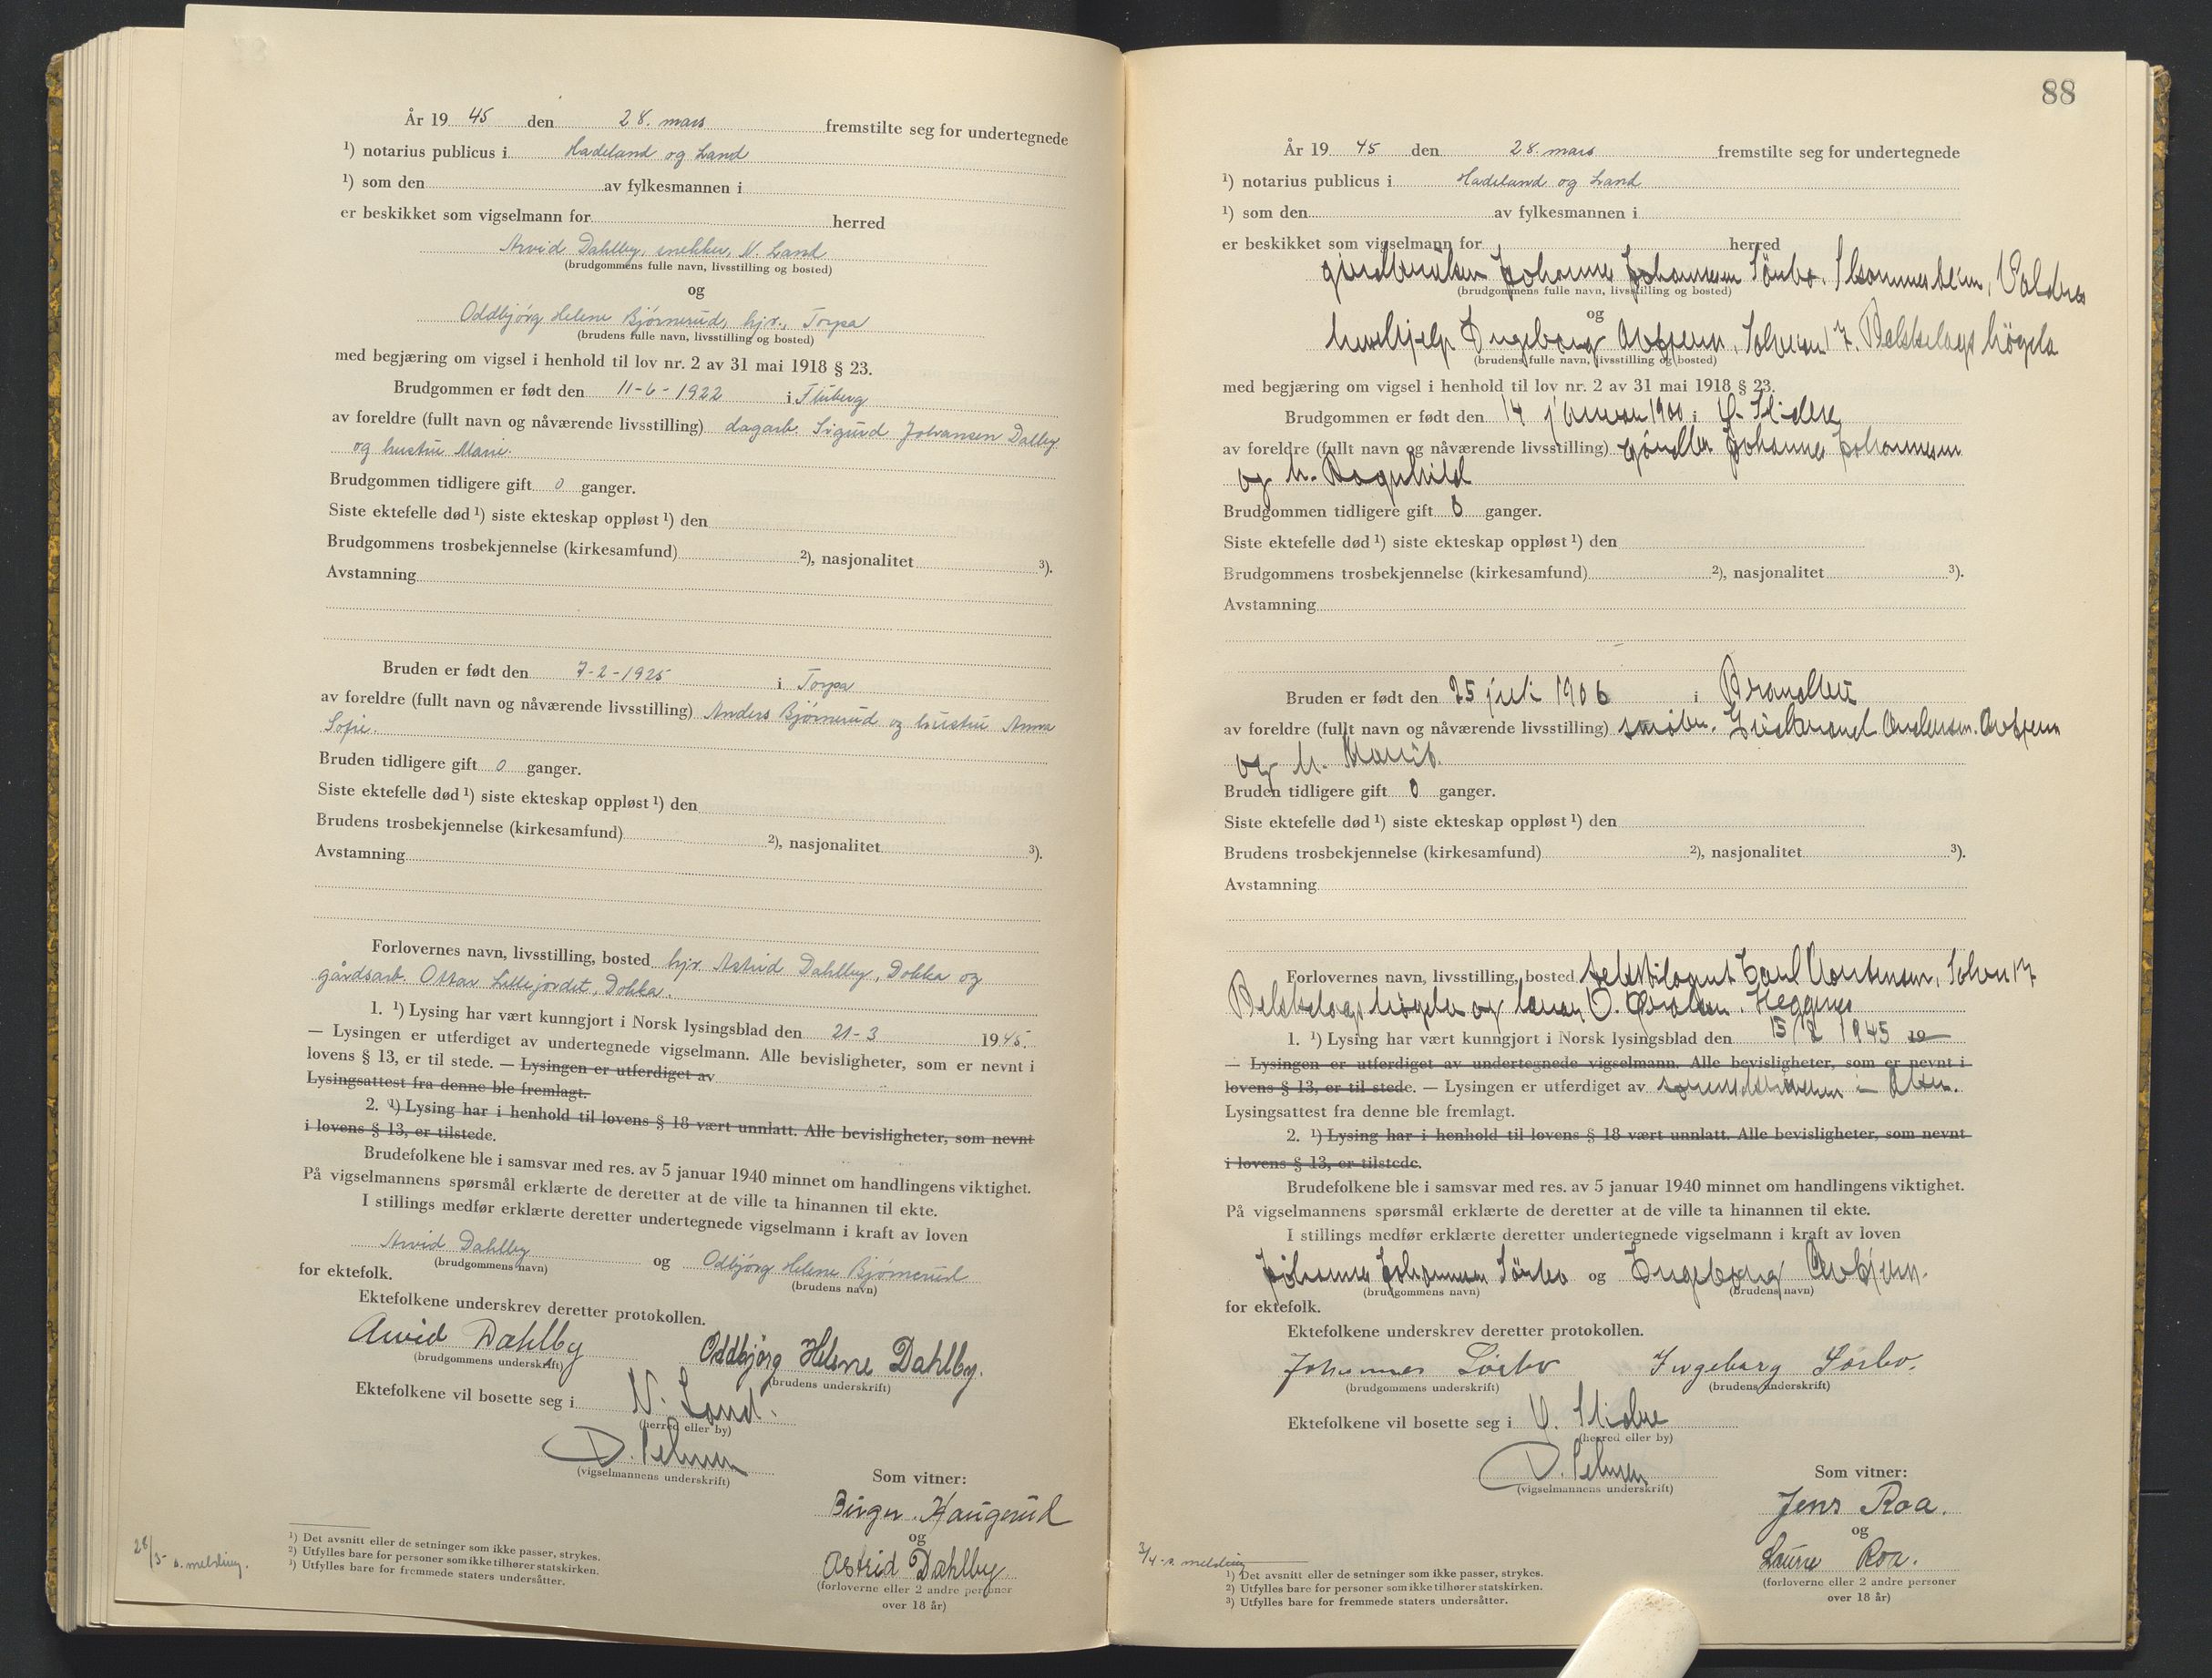 År 19 45 den 28. mars fremstilte seg for undertegnede
¹) notarius publicus i Hadeland og Land
¹) som den av fylkesmannen i
er beskikket som vigselmann for herred
Arvid Dahlby, snekker, N. Land
(brudgommens fulle navn, livsstilling og bosted)
og
Oddbjørg Helene Bjørnerud, hjv., Torpa
(brudens fulle navn, livsstilling og bosted)
med begjæring om vigsel i henhold til lov nr. 2 av 31 mai 1918 § 23.
Brudgommen er født den 11-6-1922 i Fluberg
av foreldre (fullt navn og nåværende livsstilling) dagarb. Sigurd Johansen Dalby
og hustru Marie.
Brudgommen tidligere gift 0 ganger.
Siste ektefelle død ¹) siste ekteskap oppløst ¹) den
Brudgommens trosbekjennelse (kirkesamfund) ²), nasjonalitet ³).
Avstamning
Bruden er født den 7-2-1925 i Torpa
av foreldre (fullt navn og nåværende livsstilling) Anders Bjørnerud og hustru Anna
Sofie.
Bruden tidligere gift 0 ganger.
Siste ektefelle død ¹) siste ekteskap oppløst ¹) den
Brudens trosbekjennelse (kirkesamfund) ²), nasjonalitet ³).
Avstamning
Forlovernes navn, livsstilling, bosted hjv. Astrid Dahlby, Dokka og
gårdsarb. Ottar Lillejordet, Dokka.
1. ¹) Lysing har vært kunngjort i Norsk lysingsblad den 21-3 1945.
— Lysingen er utferdiget av undertegnede vigselmann. Alle bevisligheter, som er nevnt i
lovens § 13, er til stede. — Lysingen er utferdiget av
Lysingsattest fra denne ble fremlagt.
2. ¹) Lysing har i henhold til lovens § 18 vært unnlatt. Alle bevisligheter, som nevnt
i lovens § 13, er tilstede.
Brudefolkene ble i samsvar med res. av 5 januar 1940 minnet om handlingens viktighet.
På vigselmannens spørsmål erklærte de deretter at de ville ta hinannen til ekte.
I stillings medfør erklærte deretter undertegnede vigselmann i kraft av loven
Arvid Dahlby og Odbjørg Helene Bjørnerud
(brudgommens navn) (brudens navn)
for ektefolk.
Ektefolkene underskrev deretter protokollen.
Arvid Dahlby Oddbjørg Helene Dahlby.
(brudgommens underskrift) (brudens underskrift)
Ektefolkene vil bosette seg i N. Land.
(herred eller by)
(vigselmannens underskrift)
Som vitner:
Birger Haugerud
og
Astrid Dahlby
(forloverne eller 2 andre personer
over 18 år)
28/3 s. melding.
¹) Det avsnitt eller de setninger som ikke passer, strykes.
²) Utfylles bare for personer som ikke tilhører statskirken.
³) Utfylles bare for fremmede staters undersåtter.
88
År 19 45 den 28. mars fremstilte seg for undertegnede
¹) notarius publicus i Hadeland og Land
¹) som den av fylkesmannen i
er beskikket som vigselmann for herred
Johannes Johannesen Sørbo, Valdres
(brudgommens fulle navn, livsstilling og bosted)
og
hushjelp Ingeborg
(brudens fulle navn, livsstilling og bosted)
med begjæring om vigsel i henhold til lov nr. 2 av 31 mai 1918 § 23.
Brudgommen er født den 14 januar 1900 i Ø. Slidre
av foreldre (fullt navn og nåværende livsstilling) Johannes Johannesen
og h. Ragnhild
Brudgommen tidligere gift 0 ganger.
Siste ektefelle død ¹) siste ekteskap oppløst ¹) den
Brudgommens trosbekjennelse (kirkesamfund) ²), nasjonalitet ³).
Avstamning
Bruden er født den 25 juli 1906 i Brandbu
av foreldre (fullt navn og nåværende livsstilling) småbr.
og h.
Bruden tidligere gift 0 ganger.
Siste ektefelle død ¹) siste ekteskap oppløst ¹) den
Brudens trosbekjennelse (kirkesamfund) ²), nasjonalitet ³).
Avstamning
Forlovernes navn, livsstilling, bosted
og Heggenes
1. ¹) Lysing har vært kunngjort i Norsk lysingsblad den 15/2 1945 19
— Lysingen er utferdiget av undertegnede vigselmann. Alle bevisligheter, som er nevnt i
lovens § 13, er til stede. — Lysingen er utferdiget av
Lysingsattest fra denne ble fremlagt.
2. ¹) Lysing har i henhold til lovens § 18 vært unnlatt. Alle bevisligheter, som nevnt
i lovens § 13, er tilstede.
Brudefolkene ble i samsvar med res. av 5 januar 1940 minnet om handlingens viktighet.
På vigselmannens spørsmål erklærte de deretter at de ville ta hinannen til ekte.
I stillings medfør erklærte deretter undertegnede vigselmann i kraft av loven
Johannes Johannesen Sørbo og Ingeborg
(brudgommens navn) (brudens navn)
for ektefolk.
Ektefolkene underskrev deretter protokollen.
Johannes Sørbo Ingeborg Sørbo.
(brudgommens underskrift) (brudens underskrift)
Ektefolkene vil bosette seg i Ø. Slidre
(herred eller by)
(vigselmannens underskrift)
Som vitner:
Jens Roa.
og
Laura Roa.
(forloverne eller 2 andre personer
over 18 år)
3/4 s. melding
¹) Det avsnitt eller de setninger som ikke passer, strykes.
²) Utfylles bare for personer som ikke tilhører statskirken.
³) Utfylles bare for fremmede staters undersåtter.